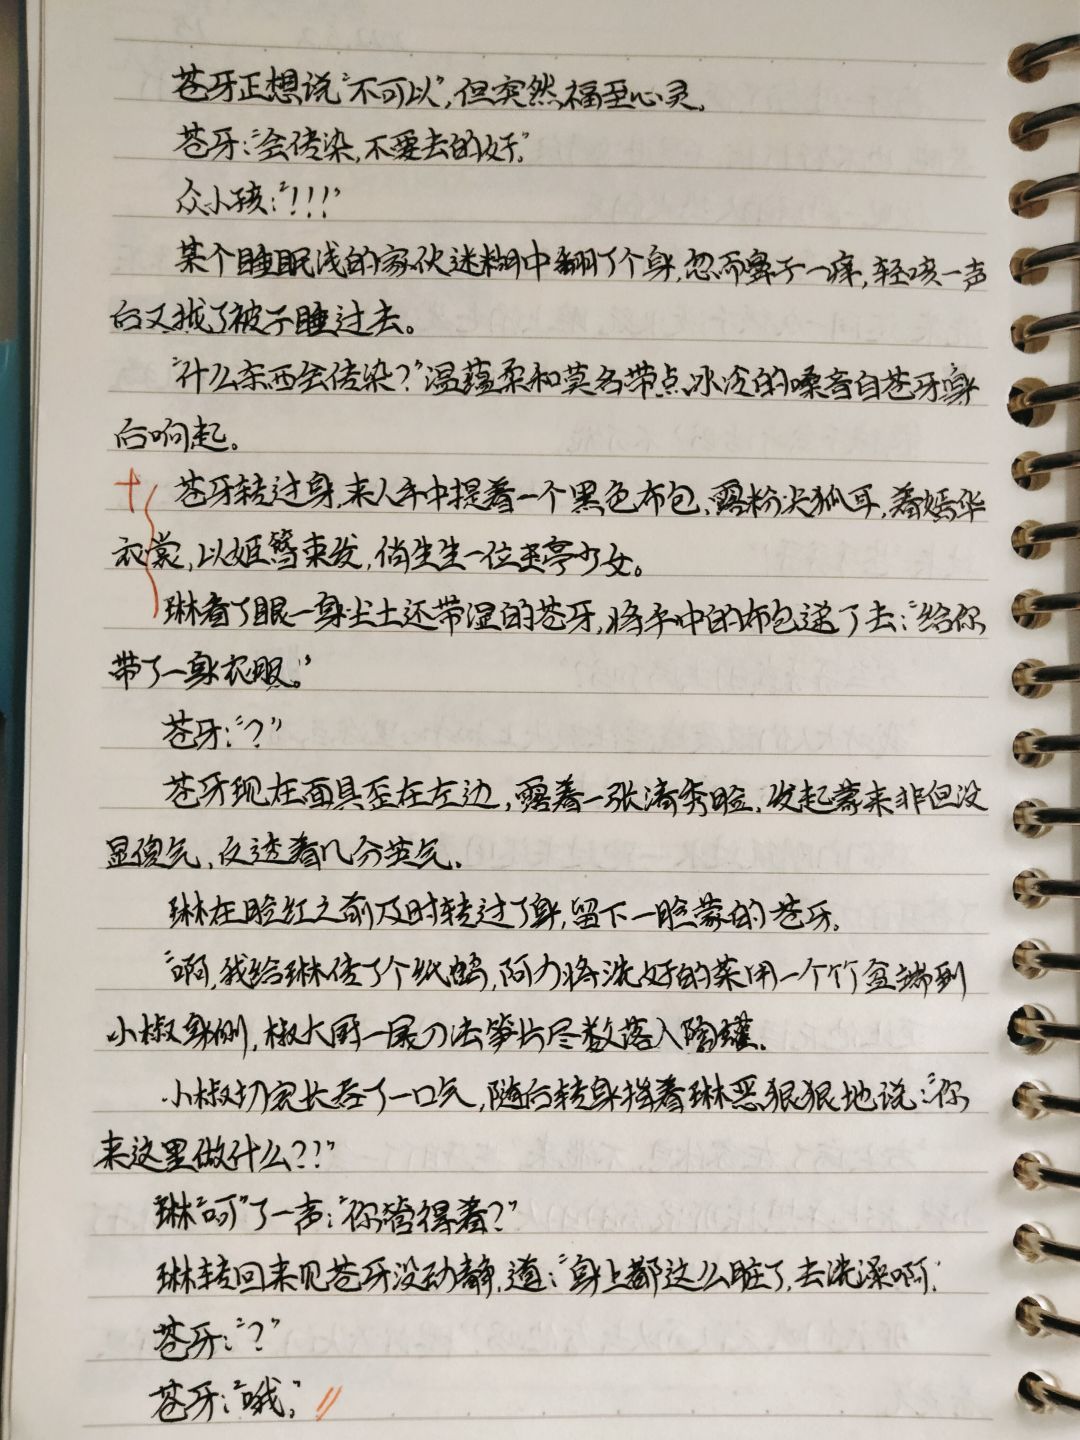 苍牙正想说“不可以”,但突然福至心灵。
苍牙:“会传染,不要去的好。”
众小孩:“!!!”
某个睡眠浅的家伙迷糊中翻了个身,忽而鼻子一痒,轻咳一声
后又找了被子睡过去。
“什么东西会传染?”温蕴柔和莫名带点冰冷的嗓音自苍牙身
后响起。
苍牙转过身,来人手中提着一个黑色布包,露粉尖狐耳,着嫣华
衣裳,以姬簪束发,俏生生一位玉亭少女。
琳看了眼一身尘土还带湿的苍牙,将手中的布包递了去:“给你
带了一身衣服。”
苍牙:“?”
苍牙现在面具歪在左边,露着一张清秀脸,发起蒙来非但没
显傻气,反透着几分英气。
琳在脸红之前及时转过了身,留下一脸蒙的苍牙。
“啊,我给琳传了个纸鹤,阿力将洗好的菜用一个竹盆端到
小椒身侧,椒大厨一展刀法笋片尽数落入陶罐。
小椒切完长吞了一口气,随后转身指着琳恶狠狠地说:“你
来这里做什么??”
琳“呵”了一声:“你管得着?”
琳转回来见苍牙没动静,道:“身上都这么脏了,去洗澡啊.
苍牙:“?”
苍牙:“哦。”